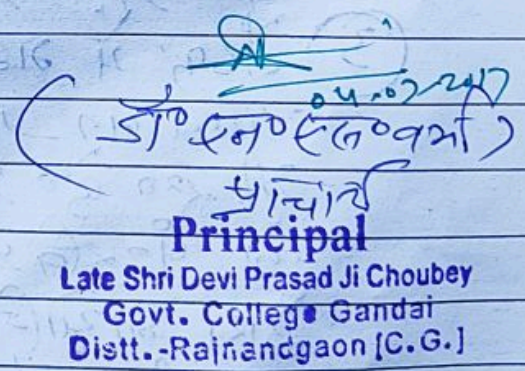 04.07.2017
(डॉ० एन० एल० वर्मा)
प्राचार्य
Principal
Late Shri Devi Prasad Ji Choubey
Govt. College Gandai
Distt.-Rajnandgaon [C.G.]